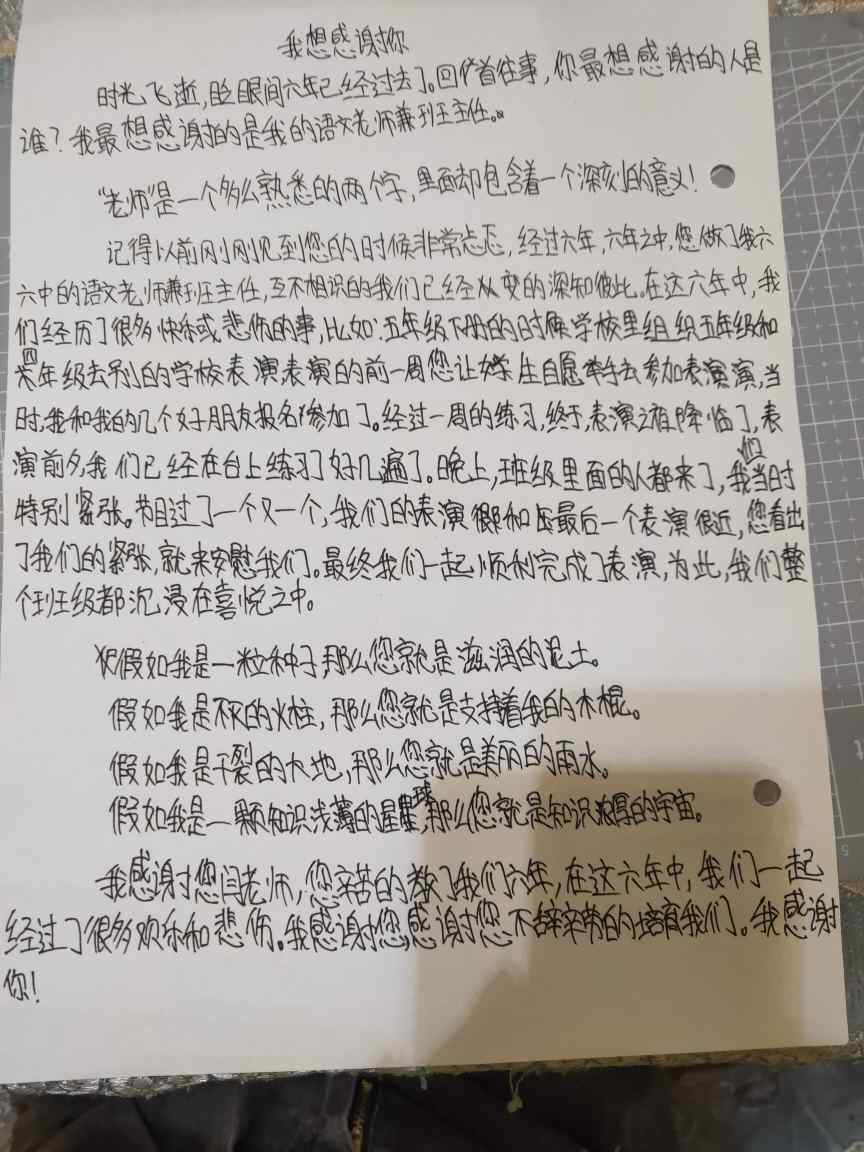 我想感谢你
时光飞逝,眨眼间六年已经过去了。回首往事,你最想感谢的人是
谁?我最想感谢的是我的语文老师兼班主任。
“老师”是一个多么熟悉的两个字,里面却包含着一个深刻的意义!
记得以前刚刚见到您的时候非常忐忑,经过六年,六年之中,您做了我六
六中的语文老师兼班主任,互不相识的我们已经从变的深知彼此。在这六年中,我
们经历了很多快乐或悲伤的事,比如:五年级下册的时候学校里组织五年级和
四年级去别的学校表演表演的前一周您让学生自愿举手去参加表演演,当
时,我和我的几个好朋友报名参加了。经过一周的练习,终于,表演之夜降临了,表
演前夕,我们已经在台上练习了好几遍了。晚上,班级里面的人都来了,我们当时
特别紧张。节目过了一个又一个,我们的表演和最后一个表演很近,您看出
了我们的紧张,就来安慰我们。最终我们一起顺利完成了表演,为此,我们整
个班级都沉浸在喜悦之中。
假如我是一粒种子,那么您就是滋润的泥土。
假如我是不灭的火柱,那么您就是支持着我的木棍。
假如我是干裂的大地,那么您就是美丽的雨水。
假如我是一颗知识浅薄的星球,那么您就是知识浓厚的宇宙。
我感谢您闫老师,您辛苦的教了我们六年,在这六年中,我们一起
经过了很多欢乐和悲伤。我感谢您,感谢您不辞辛劳的培育我们。我感谢
你!